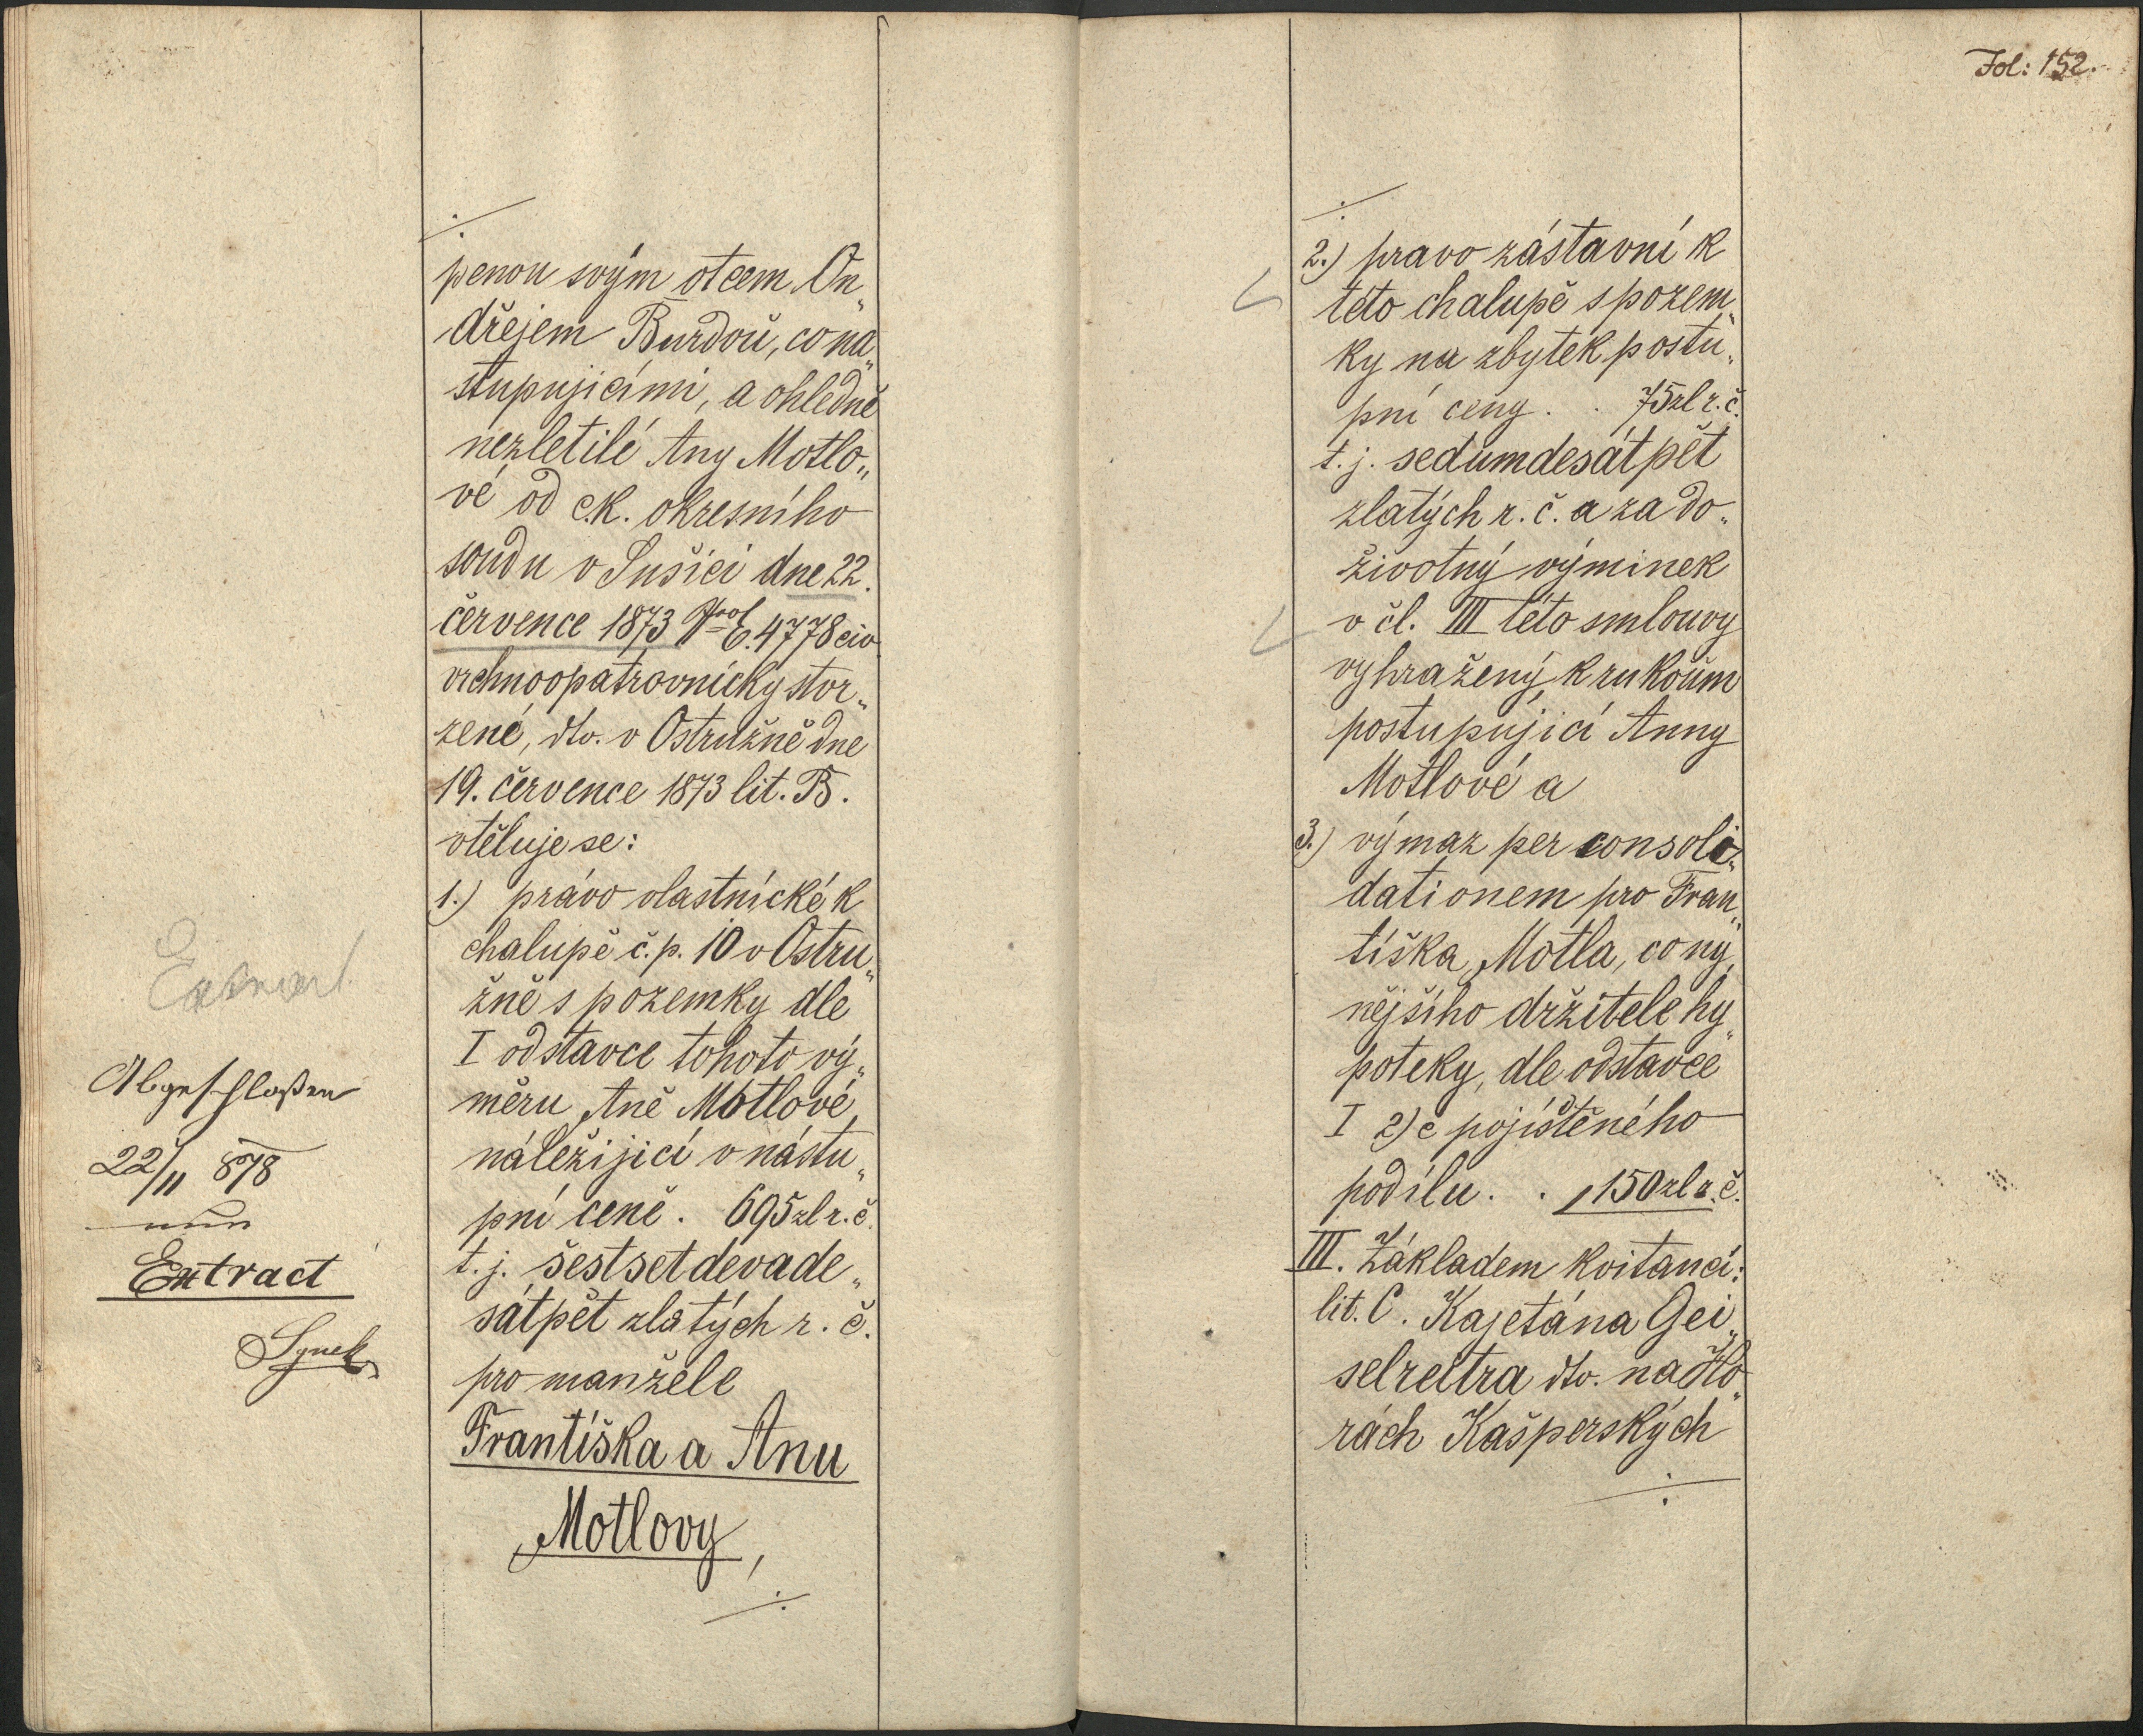 Extract
Abgeschloßen
22/11 878
Extract
Synek
./.
penou svým otcem On„
dřejem Burdou, co na„
stupujícími, a ohledně
nezletilé Any Motlo„
vé od c.k. okresního
soudu v Sušici dne 22.
července 1873 E. 4778 civ
vrchnoopatrovnicky stvr„
zené, dto. v Ostružně dne
19. července 1873 lit. B.
vtěluje se:
1.) právo vlastnické k
chalupě č.p. 10 v Ostru„
žně s pozemky dle
I odstavce tohoto vý„
měru Aně Motlové
náležijicí v nástu„
pní ceně . 695 zl r. č.
t. j. šestsetdevade„
sátpět zlatých r. č.
pro manžele
Františka a Anu
Motlovy,
./.
Fol: 152.
./.
2.) pravo zástavní k
této chalupě s pozem„
ky na zbytek postu„
pní ceny . . 75 zl r. č.
t. j. sedumdesátpět
zlatých r. č. a za do„
životný výminek
v čl. III této smlouvy
vyhražený k rukoům
postupující Anny
Motlové a
3.) výmaz per consoli„
dationem pro Fran„
tiška Motla, co ny„
nějšího držitele hy„
poteky, dle odstavce
I 2) c pojištěného
podílu . . 150 zl r. č.
III. Základem kvitancí:
lit. C. Kajetána Gei„
selreitra dto. na Ho„
rách Kašperských
./.